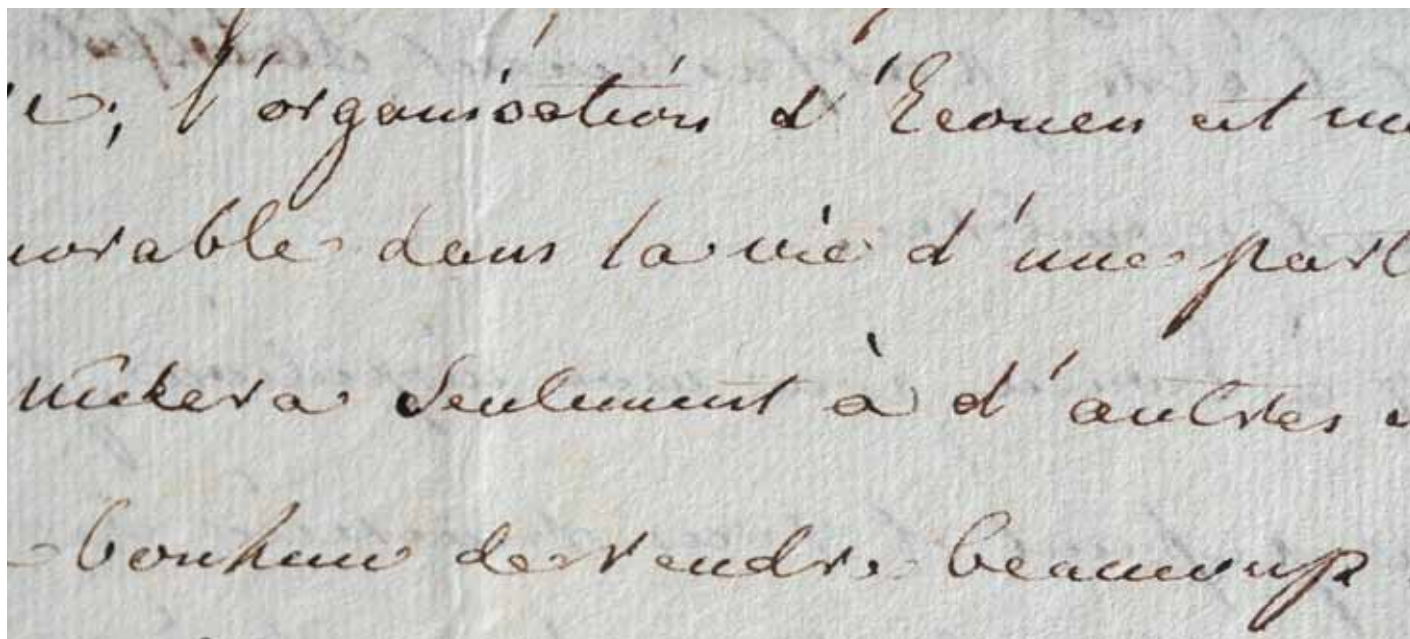 l'organisation d'Ecouen est un
orable dans la vie d'une part
seulement à d'autres
bonheur de rendre beaucoup